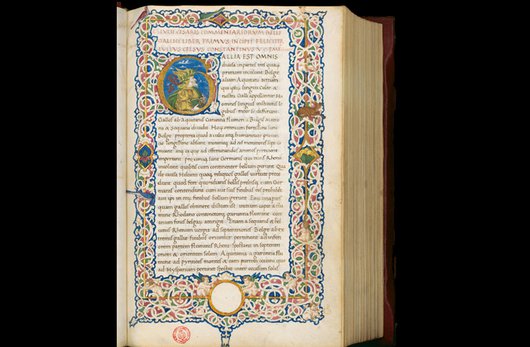 CESARIS COMMENTARIORVM BELLI
GALLICI LIBER PRIMVS INCIPIT FELICITER
IVLIVS CELSVS CONSTANTINVS V C
GALLIA EST OMNIS
diuisa in partes tris quarum
unam incolunt Belge
aliam Aquitani tertiam
qui ipsorum lingua celte
nostra Galli appellantur Hi
omnes lingua institutis le
gibus inter se differunt
Gallos ab Aquitanis Garunna flumen a Belgis matro
na & Sequana diuidit Horum omnium fortissimi sunt
Belge propterea quod a cultu atque humanitate prouin
cie longissime absunt minimeque ad eos mercatores sepe co
meant atque ea que ad effeminandos animos pertinent
important proximique sunt Germanis qui trans Rhenum
incolunt quibuscum continenter bellum gerunt Qua
de causa Heluetii quoque reliquos gallos uirtute prece
dunt quod fere quotidianis bellis preliisque cum Ger
manis contendunt cum aut suis finibus eos prohibent
aut ipsi in eorum finibus bellum gerunt Eorum una pars
quam gallos obtinere dictum est initium capit a flu
mine Rhodano continetur garunna flumine oceano
finibus belgarum attingit etiam a Sequanis & Hel
uetiis flumen Rhenum uergit ad septentriones Belge ab extre
mis gallie finibus oriuntur pertinent ad inferio
rem partem fluminis Rheni spectant in septentrionem
& orientem solem Aquitania a garunna flu
mine ad pyreneos montes & eam partem oceani que
ad Hyspaniam pertinet spectat inter occasum solis